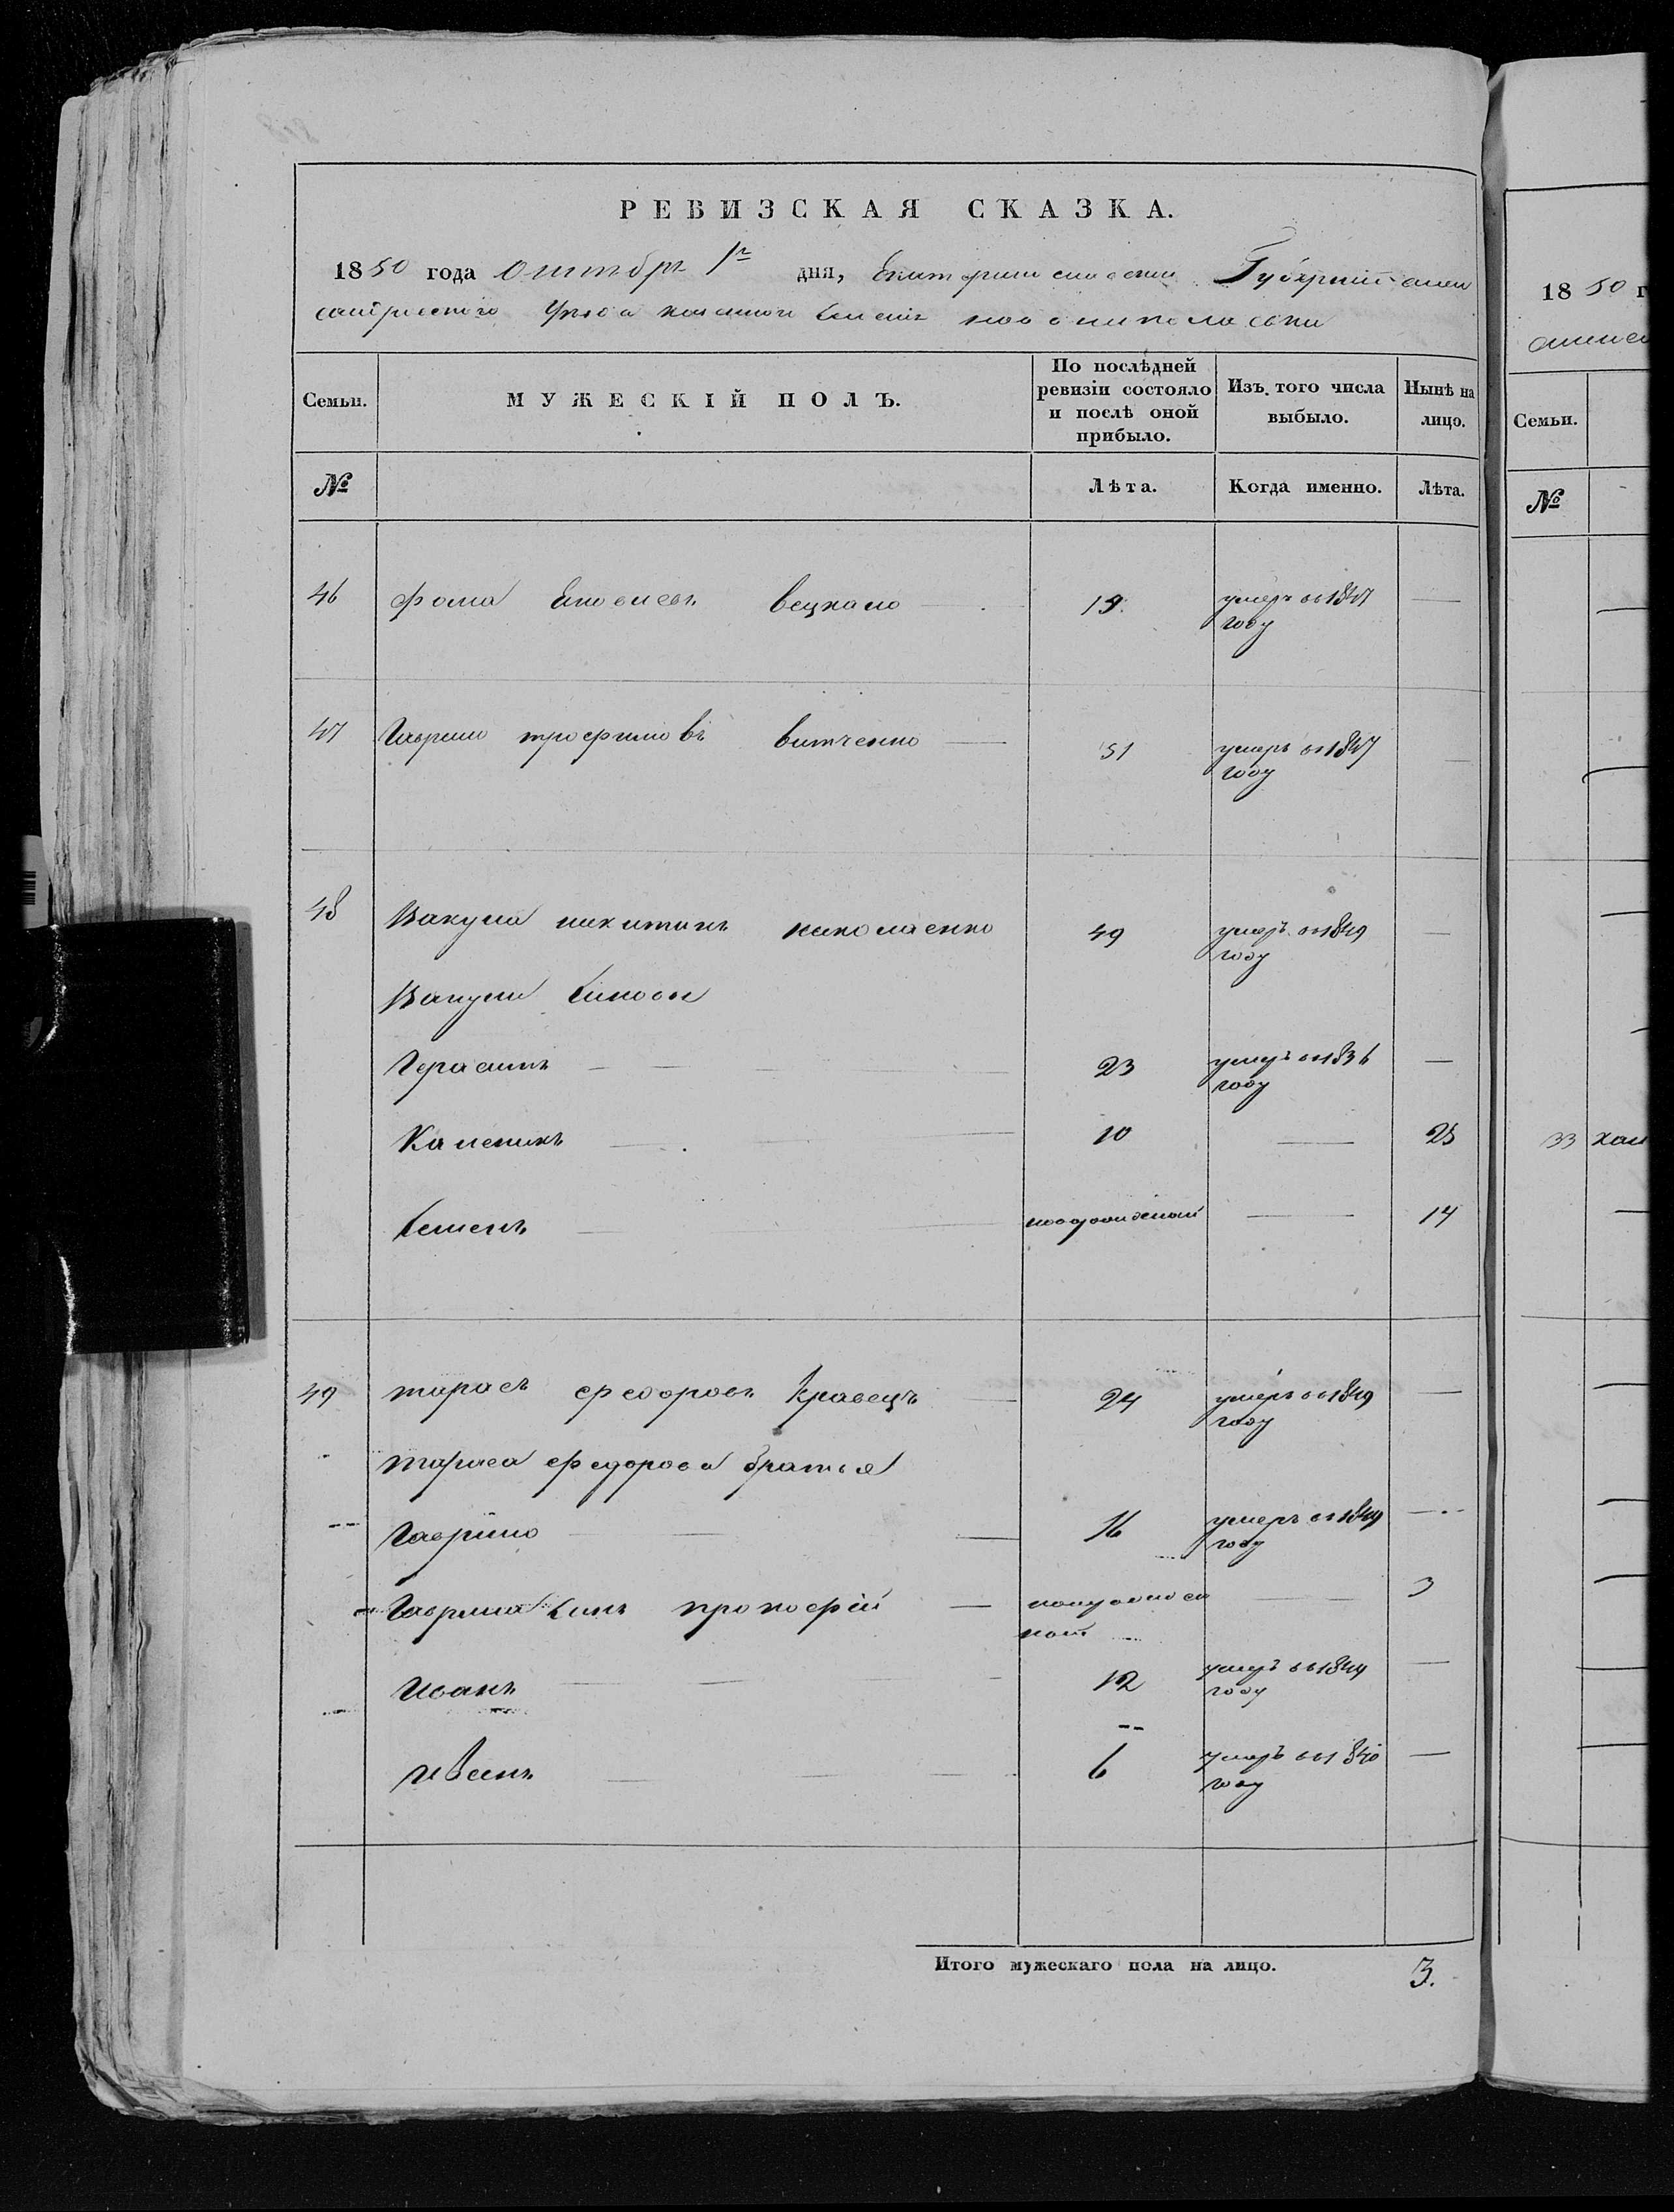 РЕВИЗСКАЯ СКАЗКА.
1850 года октября 1го дня, Екатеринославской Губернии алек
сандровского уезда казенного селения новониколаевки
Семьи. МУЖЕСКІЙ ПОЛЪ. По послѣдней ревизіи состояло и послѣ оной прибыло. Изъ того числа выбыло. Нынѣ на лицо.
№ Лѣта. Когда именно. Лѣта.
46 фома Яковлевъ вецкало 19. умеръ въ 1847 году —
47 Гаврило трофимовъ витченко 51 умеръ въ 1847 году —
48 Вакула никитинъ николаенко 49 умеръ въ 1849 году —
Вакулы Сыновья
Герасимъ 23 умеръ въ 1836 году —
Каленикъ 10 — 25
Семенъ новорожденный — 14
49 тарасъ федоровъ Кравецъ 24 умеръ въ 1849 году —
тараса федорова братья
Гаврило 16 умеръ въ 1849 году —
Гаврила Сынъ прокофій — 3
Иванъ 12 умеръ въ 1849 году —
ивванъ 6 умеръ въ 1840 году —
Итого мужескаго пола на лицо. 3.
1850 г
Семьи.
№
33